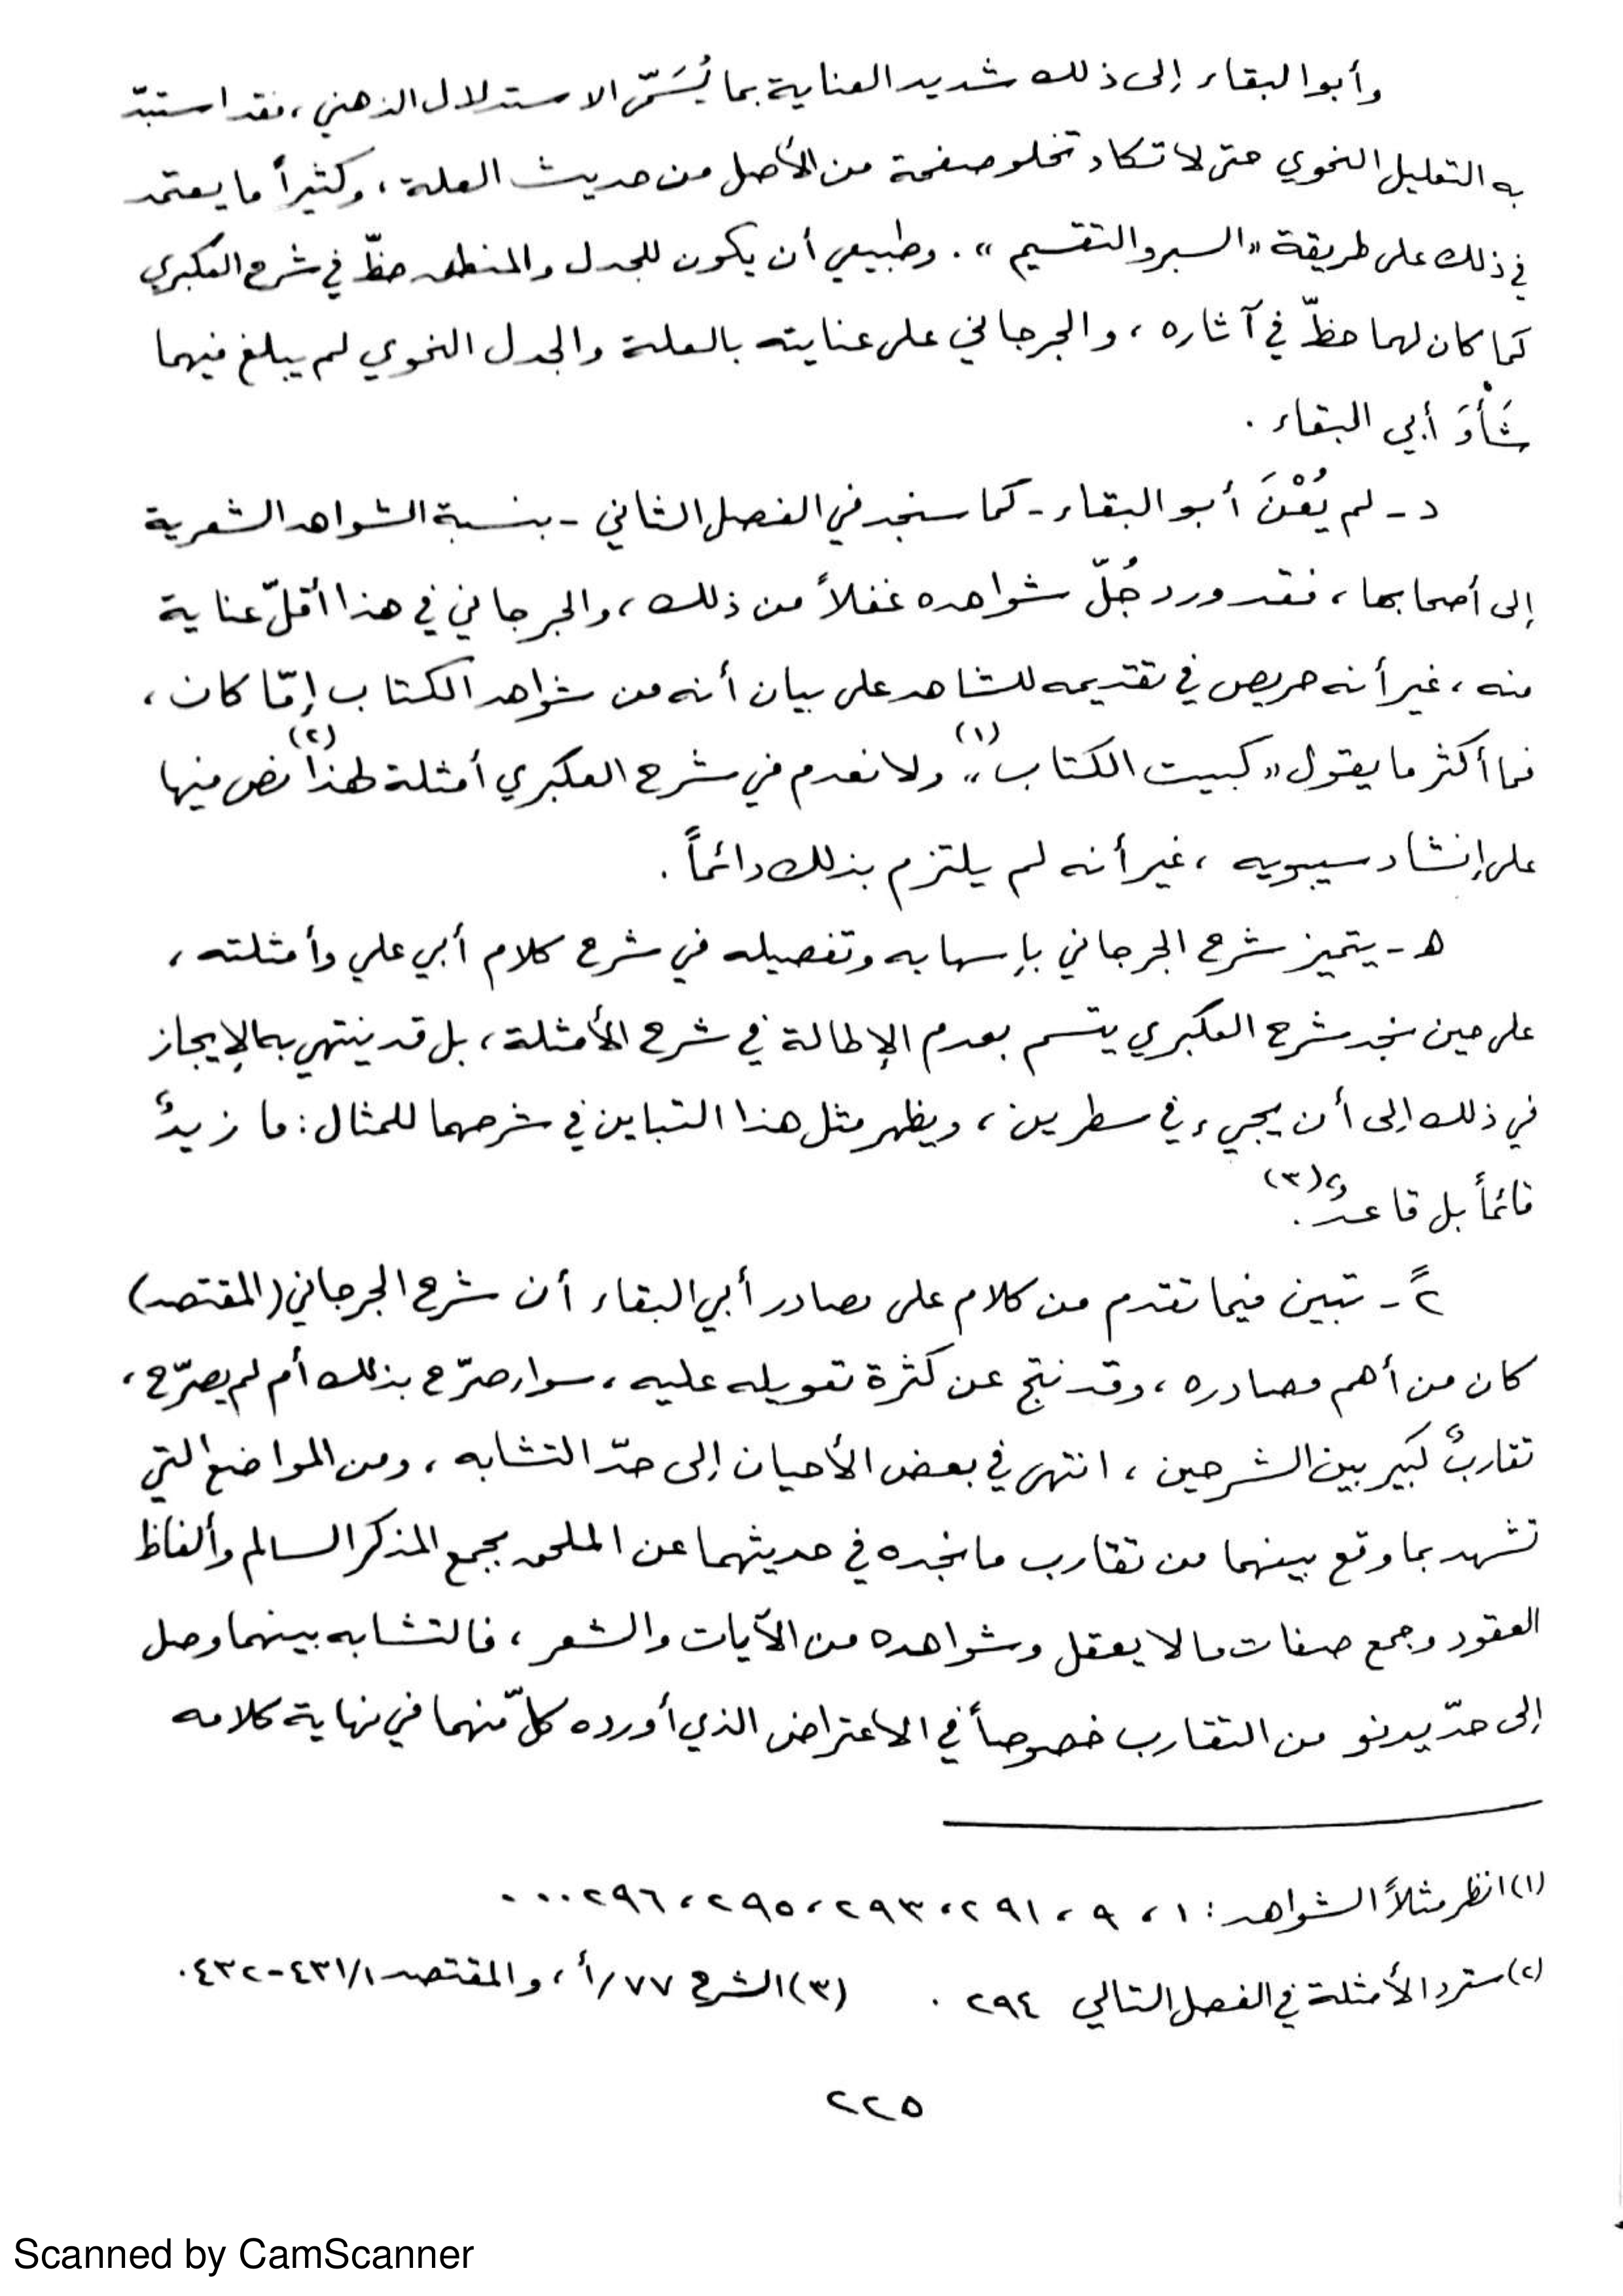 وأبو البقاء إلى ذلك شديد العناية بما يُسَمّى الاستدلال الذهني، فقد استبدّ
به التعليل النحوي حتى لا تكاد تخلو صفحة من الأصل من حديث العلة، وكثيراً ما يعتمد
في ذلك على طريقة «السبر والتقسيم». وطبيعي أن يكون للجدل والمنطق حظّ في شرح العكبري
كما كان لهما حظّ في آثاره، والجرجاني على عنايته بالعلة والجدل النحوي لم يبلغ فيهما
شَأْوَ أبي البقاء.
د - لم يُعْنَ أبو البقاء - كما سنجد في الفصل الثاني - بنسبة الشواهد الشعرية
إلى أصحابها، فقد ورد جُلّ شواهده غفلاً من ذلك، والجرجاني في هذا أقلّ عناية
منه، غير أنه حريص في تقديمه للشاهد على بيان أنه من شواهد الكتاب إمّا كان،
فما أكثر ما يقول «كبيت الكتاب»(١) ولا نعدم في شرح العكبري أمثلة لهذا(٢) نص فيها
على إنشاد سيبويه، غير أنه لم يلتزم بذلك دائماً.
هـ - يتميز شرح الجرجاني بإسهابه وتفصيله في شرح كلام أبي علي وأمثلته،
على حين نجد شرح العكبري يتسم بعدم الإطالة في شرح الأمثلة، بل قد ينتهي به الإيجاز
في ذلك إلى أن يجيء في سطرين، ويظهر مثل هذا التباين في شرحهما للمثال: ما زيدٌ
قائماً بل قاعدٌ(٣).
٢ً - تبين فيما تقدم من كلام على مصادر أبي البقاء أن شرح الجرجاني (المقتصد)
كان من أهم مصادره، وقد نتج عن كثرة تعويله عليه، سواء صرّح بذلك أم لم يصرّح،
تقاربٌ كبير بين الشرحين، انتهى في بعض الأحيان إلى حدّ التشابه، ومن المواضع التي
تشهد بما وقع بينهما من تقارب ما نجده في حديثهما عن الملحق بجمع المذكر السالم وألفاظ
العقود وجمع صفات ما لا يعقل وشواهده من الآيات والشعر، فالتشابه بينهما وصل
إلى حدّ يدنو من التقارب خصوصاً في الاعتراض الذي أورده كلّ منهما في نهاية كلامه
(١) انظر مثلاً الشواهد: ١، ٩، ٢٩١، ٢٩٣، ٢٩٥، ٢٩٦...
(٢) سترد الأمثلة في الفصل التالي ٢٩٤. (٣) الشرح ٧٧/أ، والمقتصد ٤٣١/١-٤٣٢.
٢٢٥
Scanned by CamScanner